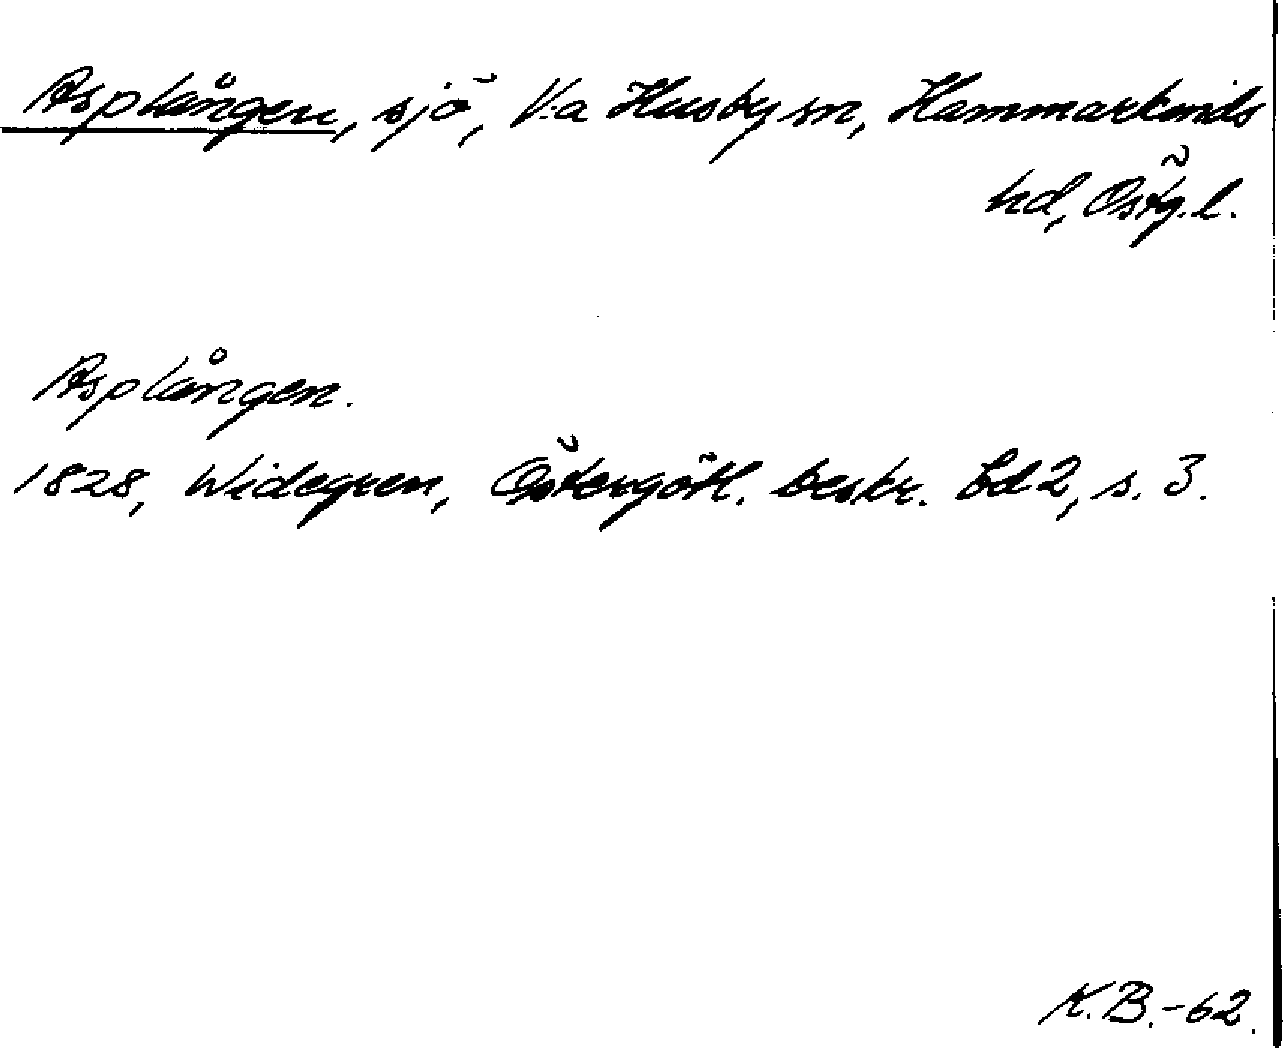 Asplången, sjö, V:a Husby sn, Hammarkinds
hd, Östg. l.
Asplången.
1828, Widegren, Östergötl. beskr. bd 2, s. 3.
K.B.-62.